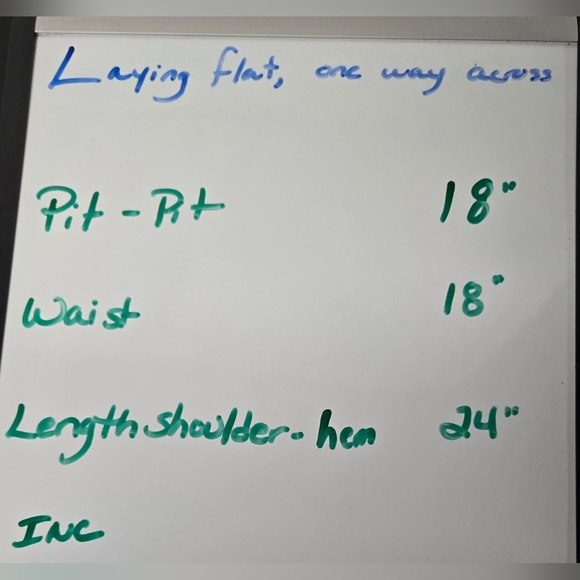 Laying flat, one way across
Pit - Pit 18"
Waist 18"
Length shoulder - hem 24"
INC